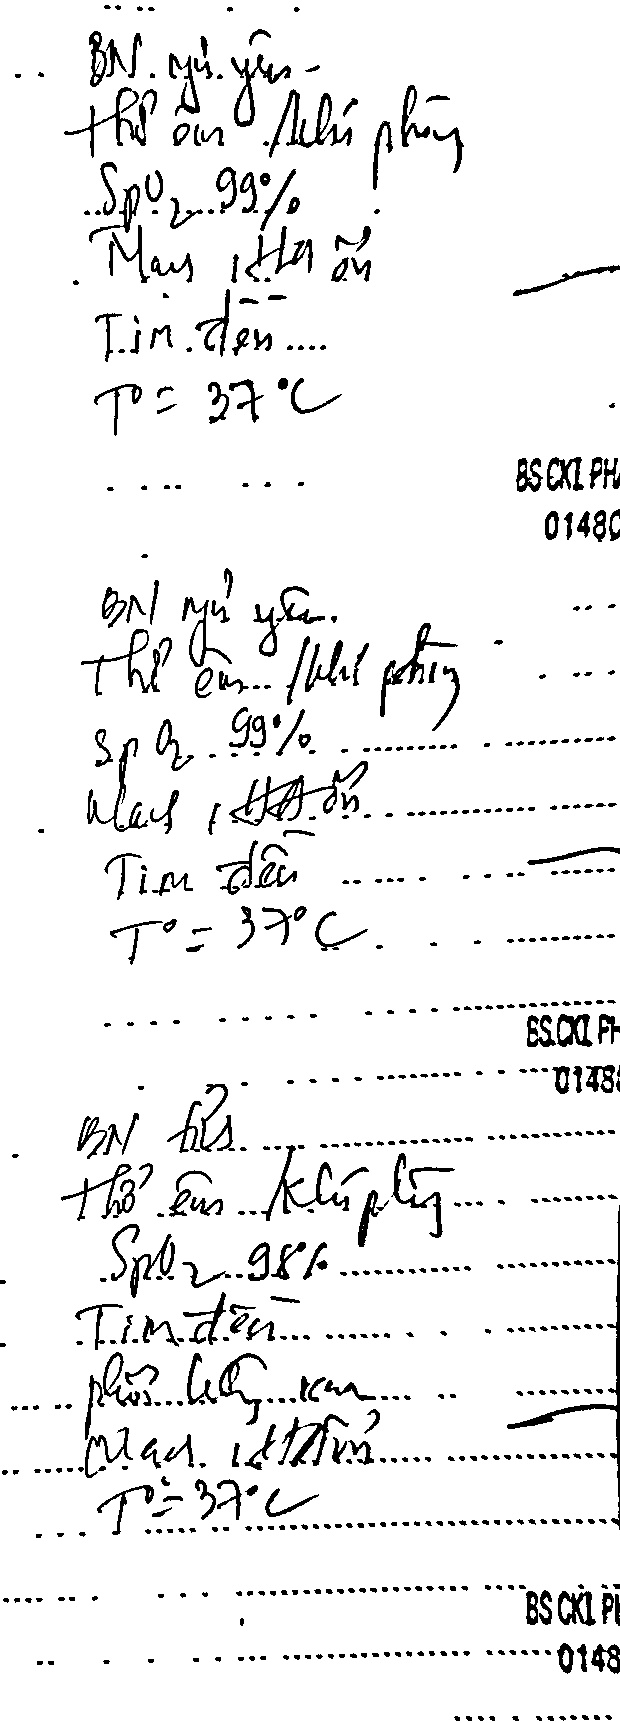 BN ngủ yên
Thở êm / khí phòng
SpO2 99%
Mạch, HA ổn
Tim đều
T° = 37°C
BS CKI PHẠ
0148
BN ngủ yên.
Thở êm / khí phòng
SpO2 99%
Mạch, HA ổn
Tim đều
T° = 37°C
BS.CKI PH
0148
BN tỉnh
Thở êm / khí phòng
SpO2 98%
Tim đều
phổi không ran
Mạch, HA ổn
T° = 37°C
BS CKI PH
0148